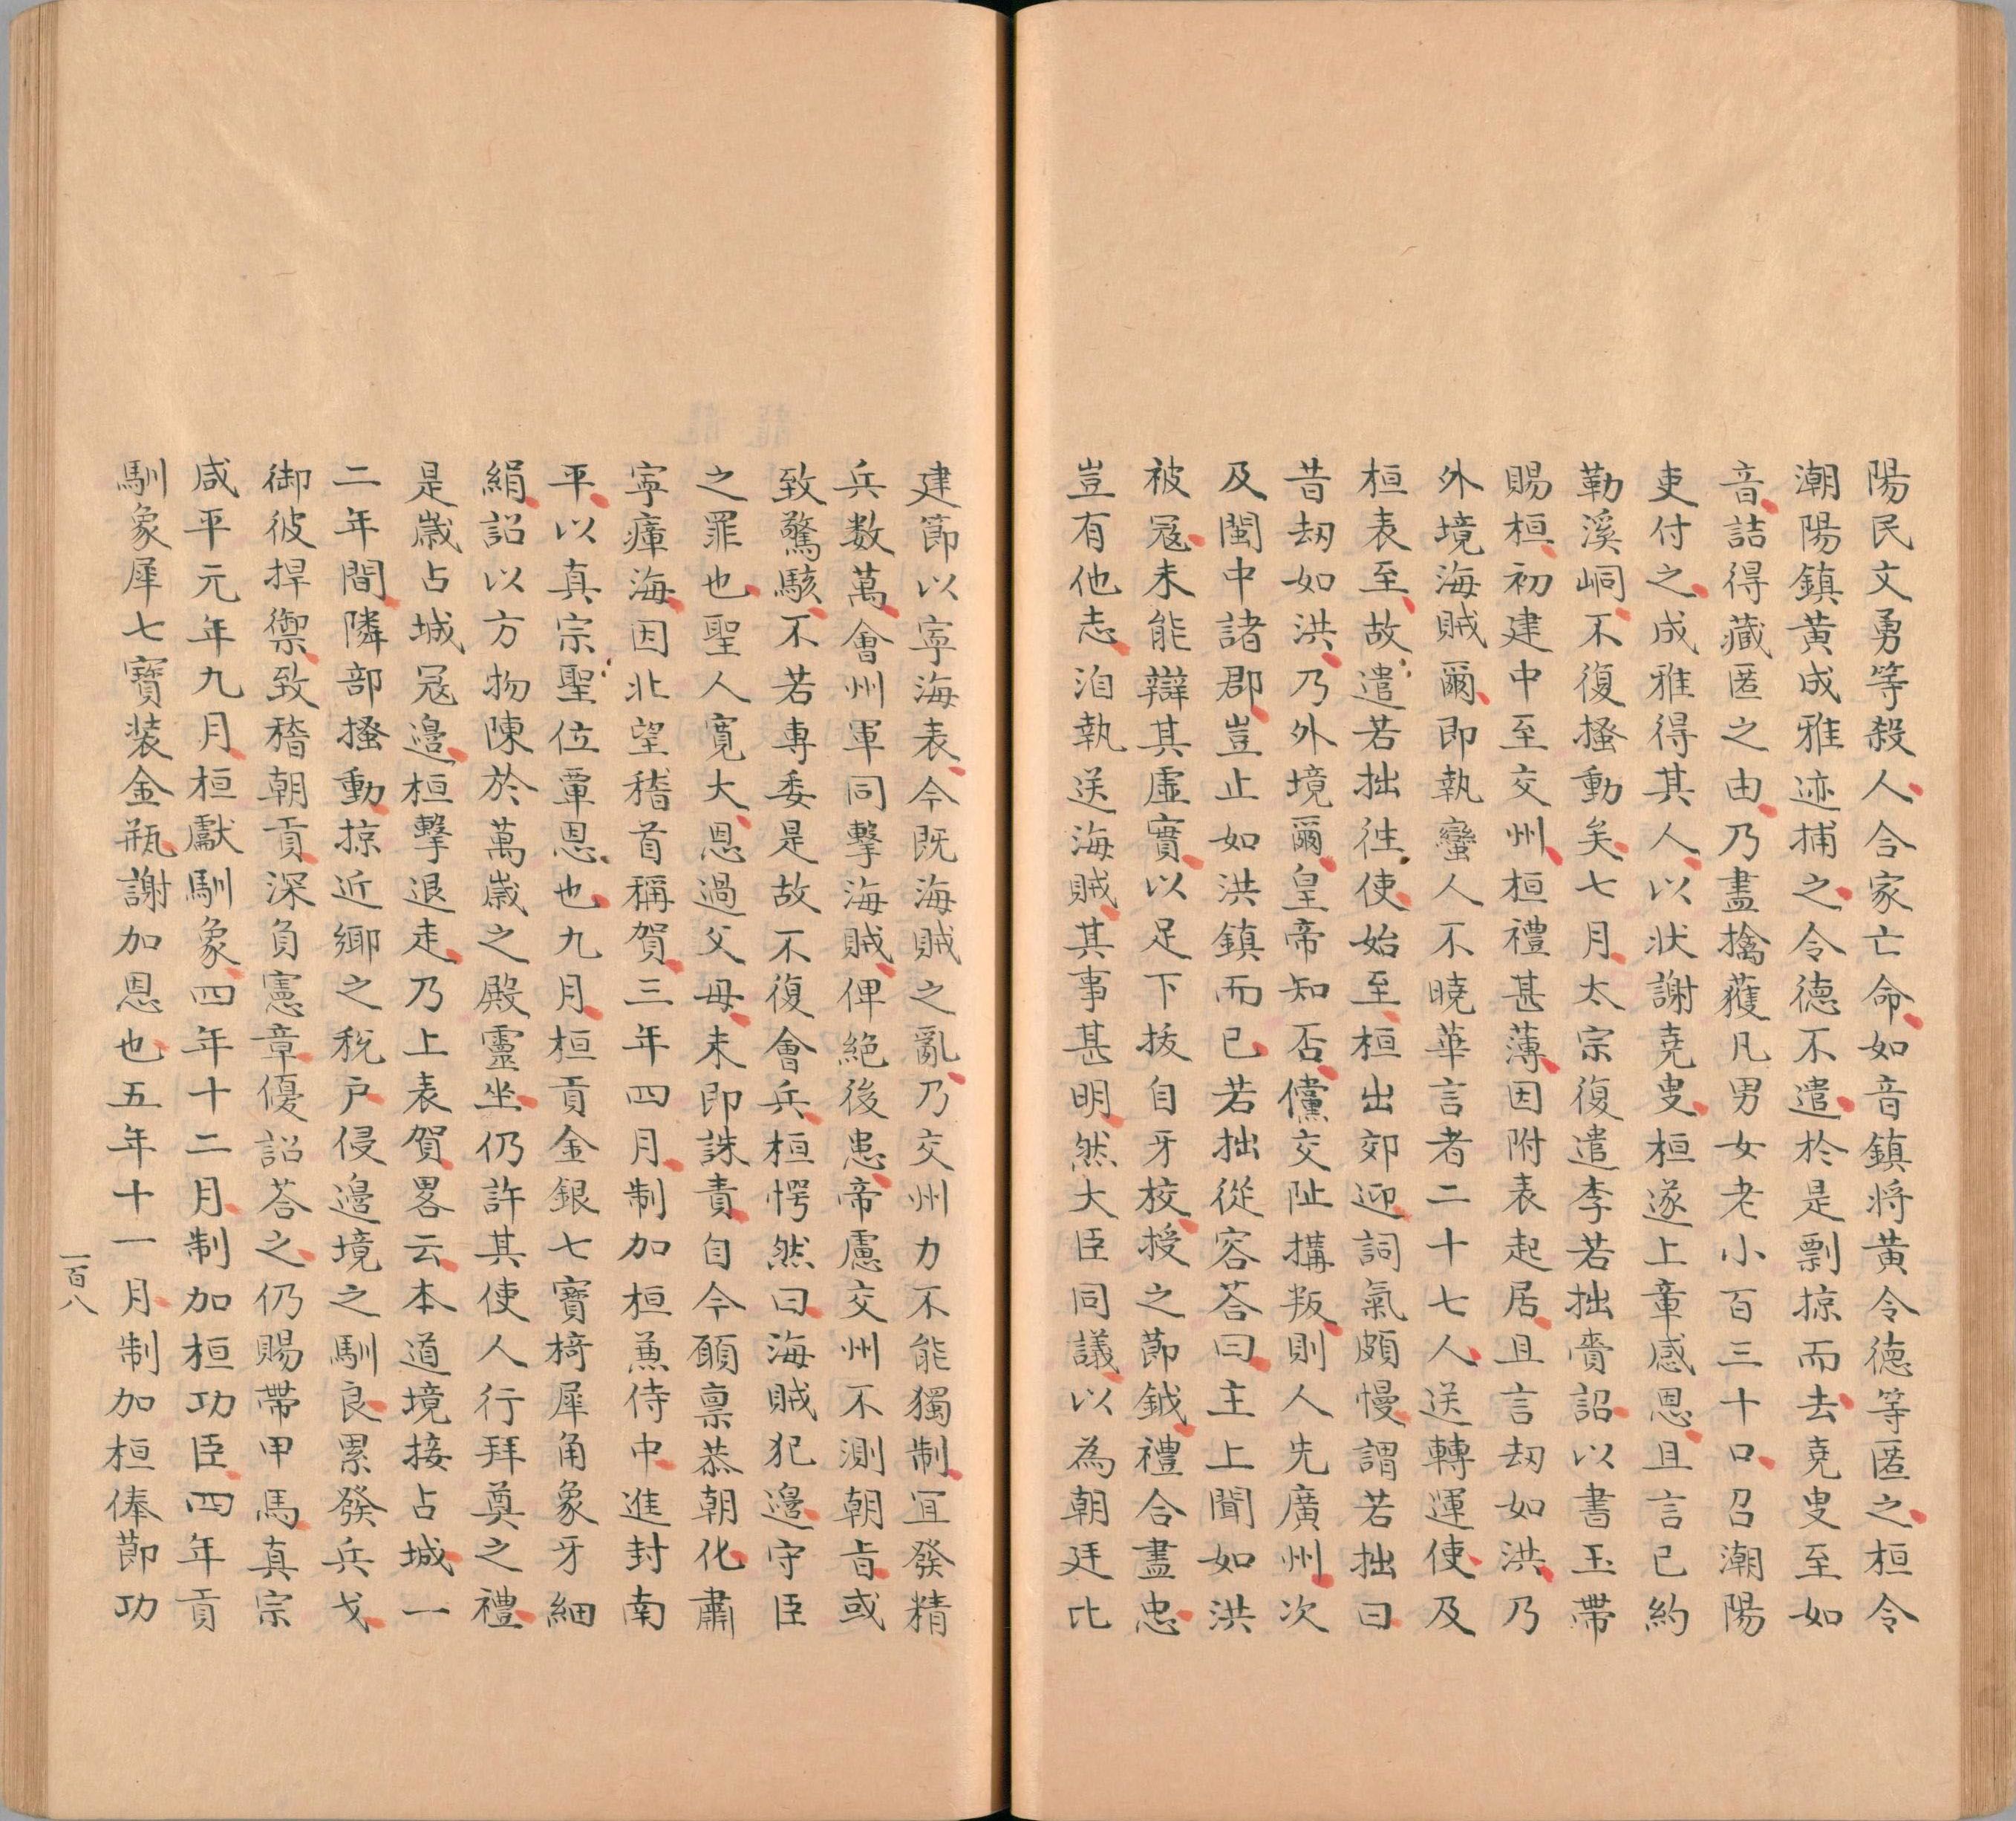 陽民文勇等殺人合家亡命如音鎮将黄令德等匿之桓令
潮陽鎮黄成雅迹捕之令德不遣於是剽掠而去堯叟至如
音詰得藏匿之由乃盡擒蒦凡男女老小百三十口召潮陽
吏付之成雅得其人以状謝堯叟桓遂上章感恩且言已約
勒溪峒不復搔動矣七月太宗復遣李若拙賫詔以書玉帶
賜桓初建中至交州桓禮甚薄因附表起居且言刼如洪乃
外境海賊爾即執蠻人不曉華言者二十七人送轉運使及
桓表至故遣若拙往使始至桓出郊迎詞氣頗慢謂若拙曰
昔刼如洪乃外境爾皇帝知否儻交阯搆叛則人先廣州次
及閩中諸郡豈止如洪鎮而已若拙從容荅曰主上聞如洪
被冦未能辯其虛實以足下拔自牙校授之節鉞禮合盡忠
豈有他志洎執送海賊其事甚明然大臣同議以為朝廷比
建節以寜海表今既海賊之亂乃交州力不能獨制宜發精
兵数萬會州軍同擊海賊俾絕後患帝慮交州不測朝㫖或
致驚駭不若専委是故不復會兵桓愕然曰海賊犯邉守臣
之罪也聖人寛大恩過父母未即誅責自今願禀恭朝化肅
寜瘴海因北望稽首稱賀三年四月制加桓兼侍中進封南
平以真宗聖位覃恩也九月桓貢金銀七寶椅犀角象牙細
絹詔以方物陳於萬嵗之殿靈坐仍許其使人行拜奠之禮
是嵗占城冦邉桓擊退走乃上表賀畧云本道境接占城一
二年間隣部搔動掠近鄉之税户侵邉境之馴良累發兵戈
御彼捍禦致稽朝貢深負憲章優詔荅之仍賜帶甲馬真宗
咸平元年九月桓獻馴象四年十二月制加桓功臣四年貢
馴象犀七寶装金瓶謝加恩也五年十一月制加桓俸節功
一百八